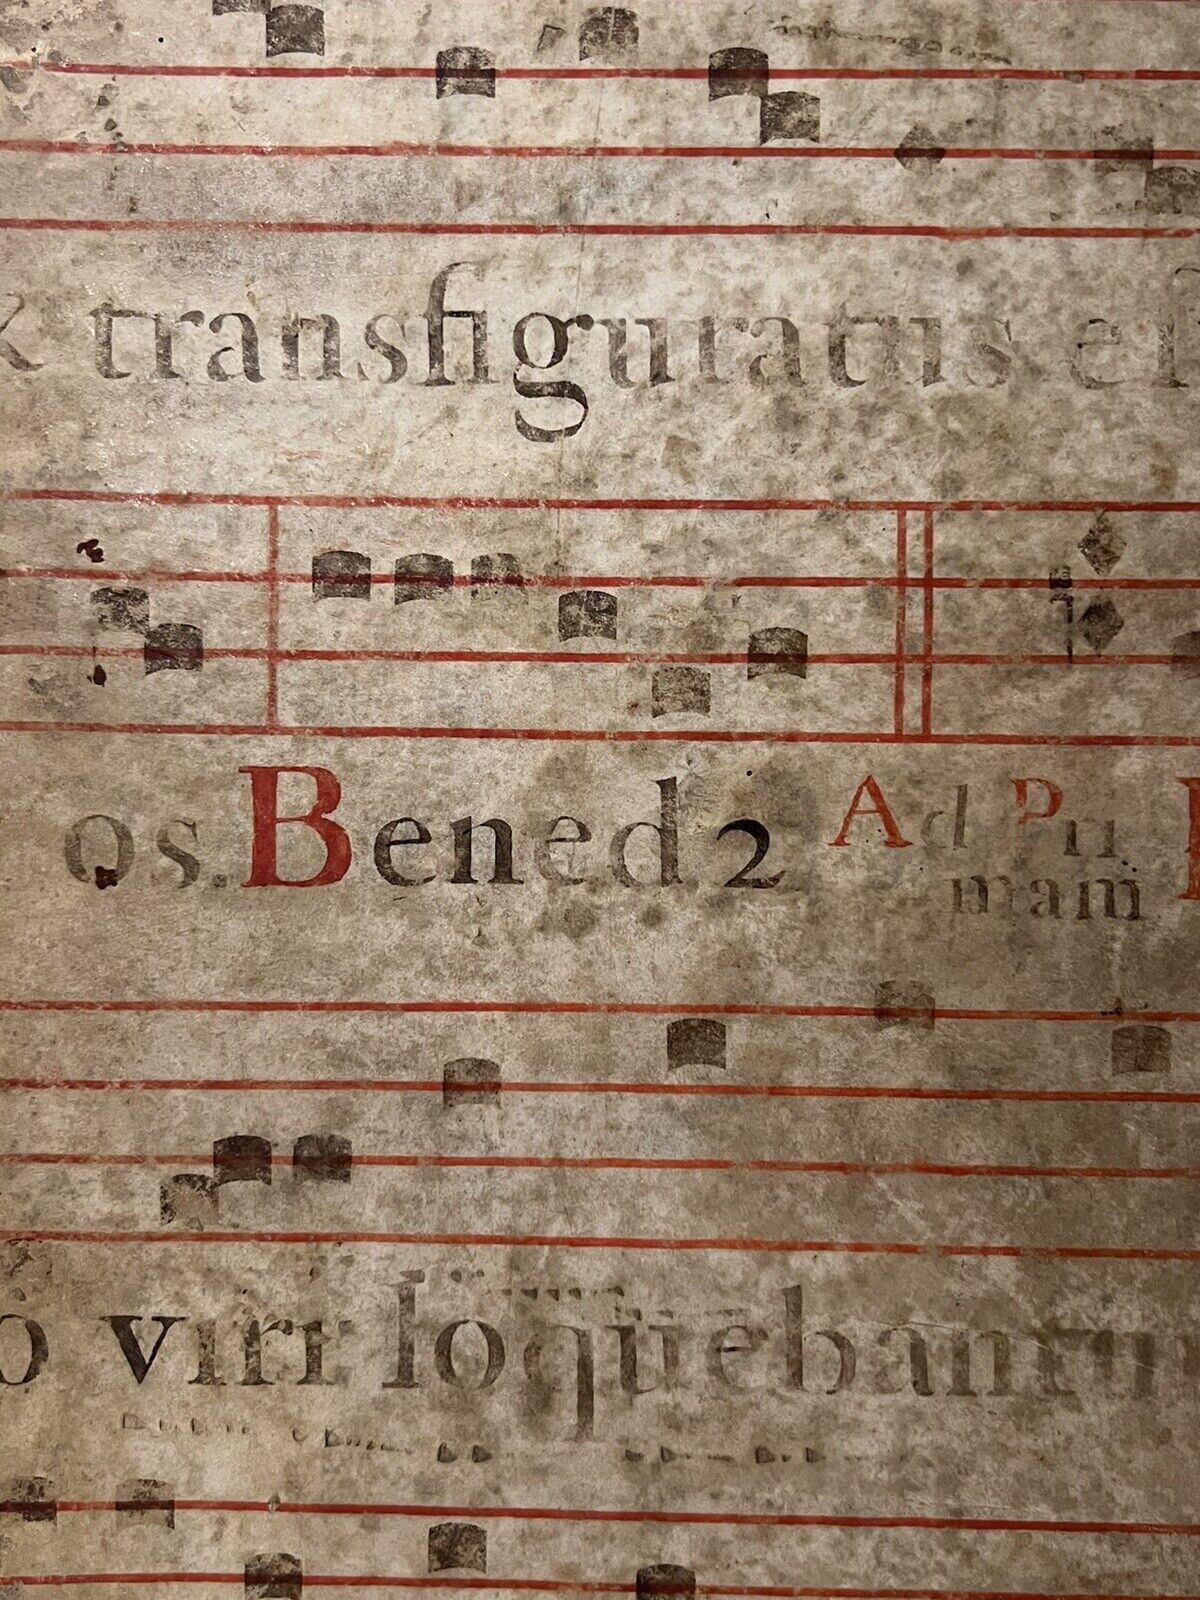 & transfiguratus es
os. Bened2 Ad Pri
mam
o viri loquebantu